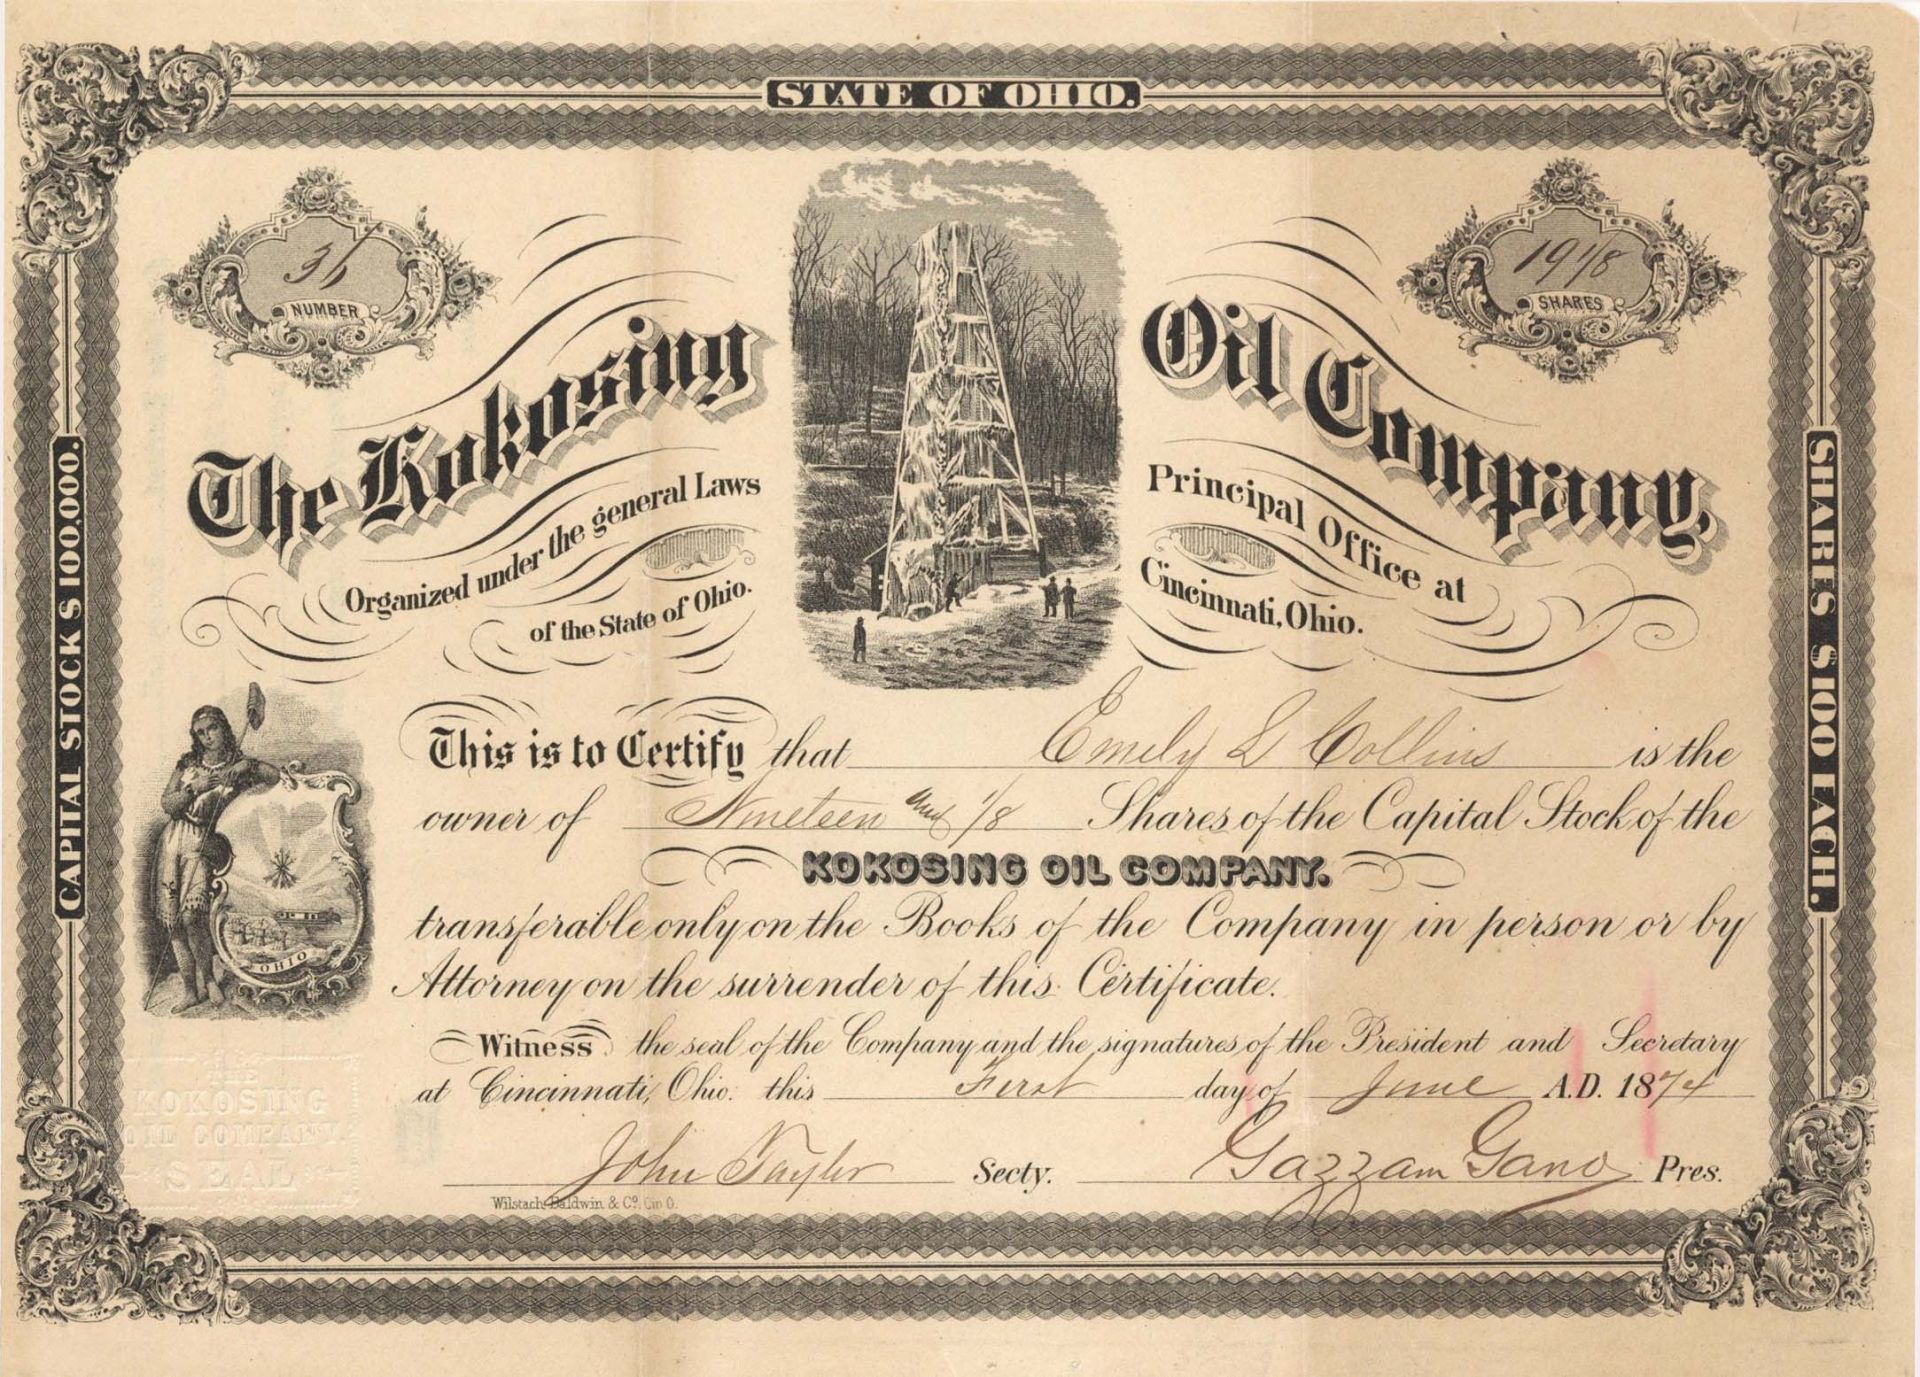 STATE OF OHIO.
36
NUMBER
19 1/8
SHARES
The Kokosing Oil Company,
Organized under the general Laws
of the State of Ohio.
Principal Office at
Cincinnati, Ohio.
CAPITAL STOCK $100,000.
SHARES $100 EACH.
This is to Certify that Emily L Collins is the
owner of Nineteen and 1/8 Shares of the Capital Stock of the
KOKOSING OIL COMPANY.
transferable only on the Books of the Company in person or by
Attorney on the surrender of this Certificate.
OHIO
Witness the seal of the Company and the signatures of the President and Secretary
at Cincinnati, Ohio. this First day of June A.D. 1874
THE
KOKOSING
OIL COMPANY.
SEAL
John Taylor Secty. Gazzam Gano Pres.
Wilstach, Baldwin & Co. Cin O.